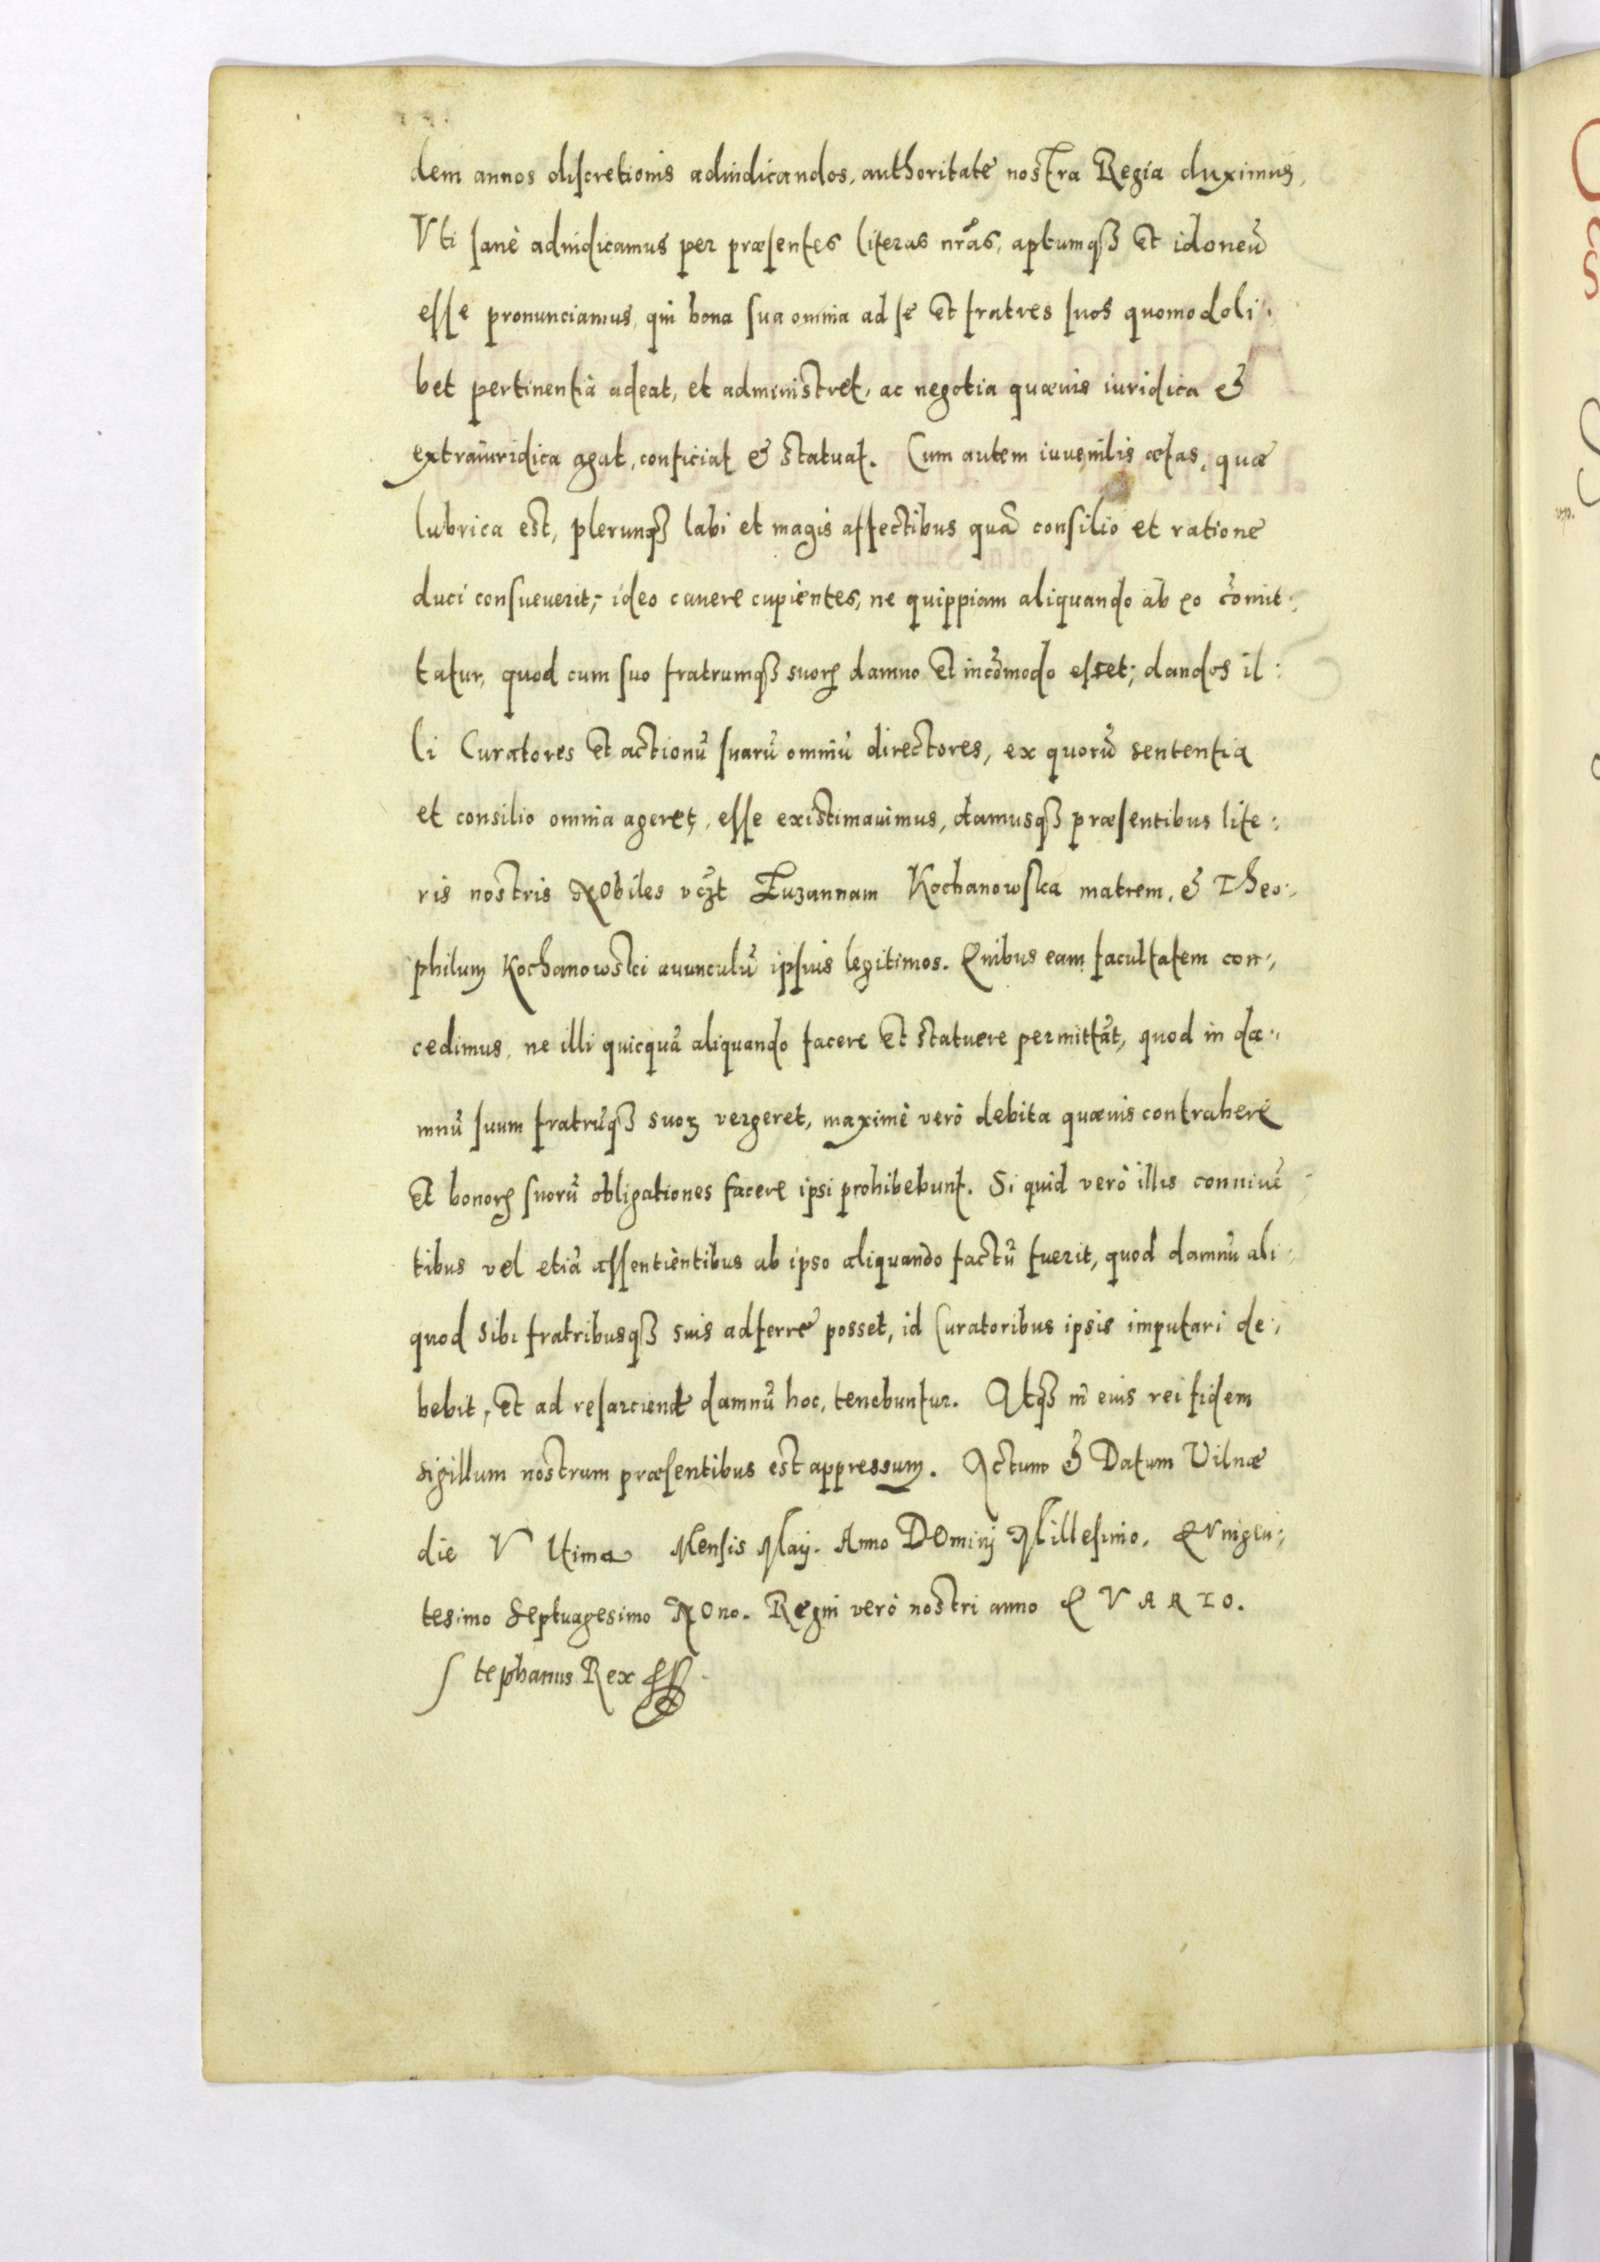 dem annos discretionis adiudicandos, authoritate nostra Regia duximus,
Vti sanè adiudicamus per præsentes literas nr̃as, aptumqȝ et idoneũ
esse pronunciamus, qui bona sua omnia ad se et fratres suos quomodoli:
bet pertinentia adeat, et administret, ac negotia quæuis iuridica &
extraiuridica agat, conficiat & statuat. Cum autem iuvenilis ætas, quæ
lubrica est, plerunqȝ labi et magis affectibus quã consilio et ratione
duci consueverit; ideo cauere cupientes, ne quippiam aliquando ab eo cõmit:
tatur, quod cum suo fratrumqȝ suorꝝ damno et incõmodo esset; dandos il:
li Curatores et actionũ suarũ omniũ directores, ex quorũ sententia
et consilio omnia ageret, esse existimauimus, damusqȝ præsentibus lite:
ris nostris Nobiles vczt Zuzannam Kochanowska matrem, & Theo:
philum Kochanowski auunculũ ipsius legitimos. Quibus eam facultatem con:
cedimus, ne illi quicquã aliquando facere et statuere permittãt, quod in da:
mnũ suum fratrũqȝ suoꝝ vergeret, maximè verò debita quæuis contrahere
et bonorꝝ suorũ obligationes facere ipsi prohibebunt. Si quid verò illis conniuẽ
tibus vel etiã assentientibus ab ipso aliquando factũ fuerit, quod damnũ ali:
quod sibi fratribusqȝ suis adferre posset, id Curatoribus ipsis imputari de:
bebit, et ad resarciend damnũ hoc, tenebuntur. Atqȝ in eius rei fidem
sigillum nostrum præsentibus est appressum. Actum & Datum Vilnæ
die Vltima Mensis Maij. Anno Dominj Millesimo. Quingen:
tesimo Septuagesimo Nono. Regni verò nostri anno QVARTO.
Stephanus Rex